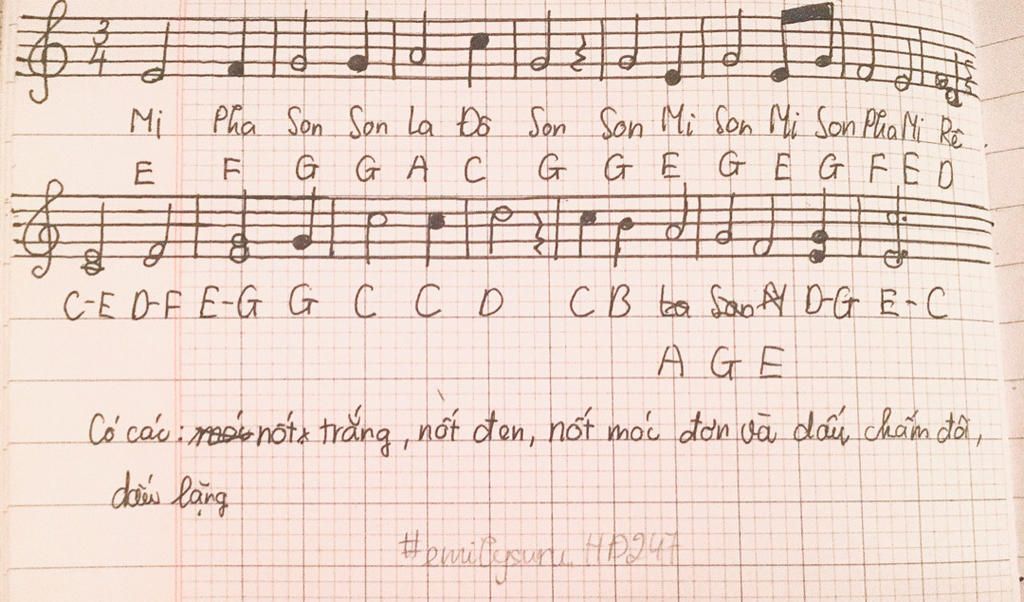 3
4
Mi Pha Son Son La Đô Son Son Mi Son Mi Son Pha Mi Rê
E F G G A C G G E G E G F E D
C-E D-F E-G G C C D C B La Son D-G E-C
A G E
Có các: nốt trắng, nốt đen, nốt móc đơn và dấu chấm đôi,
dấu lặng
#emilysuru_HĐ247